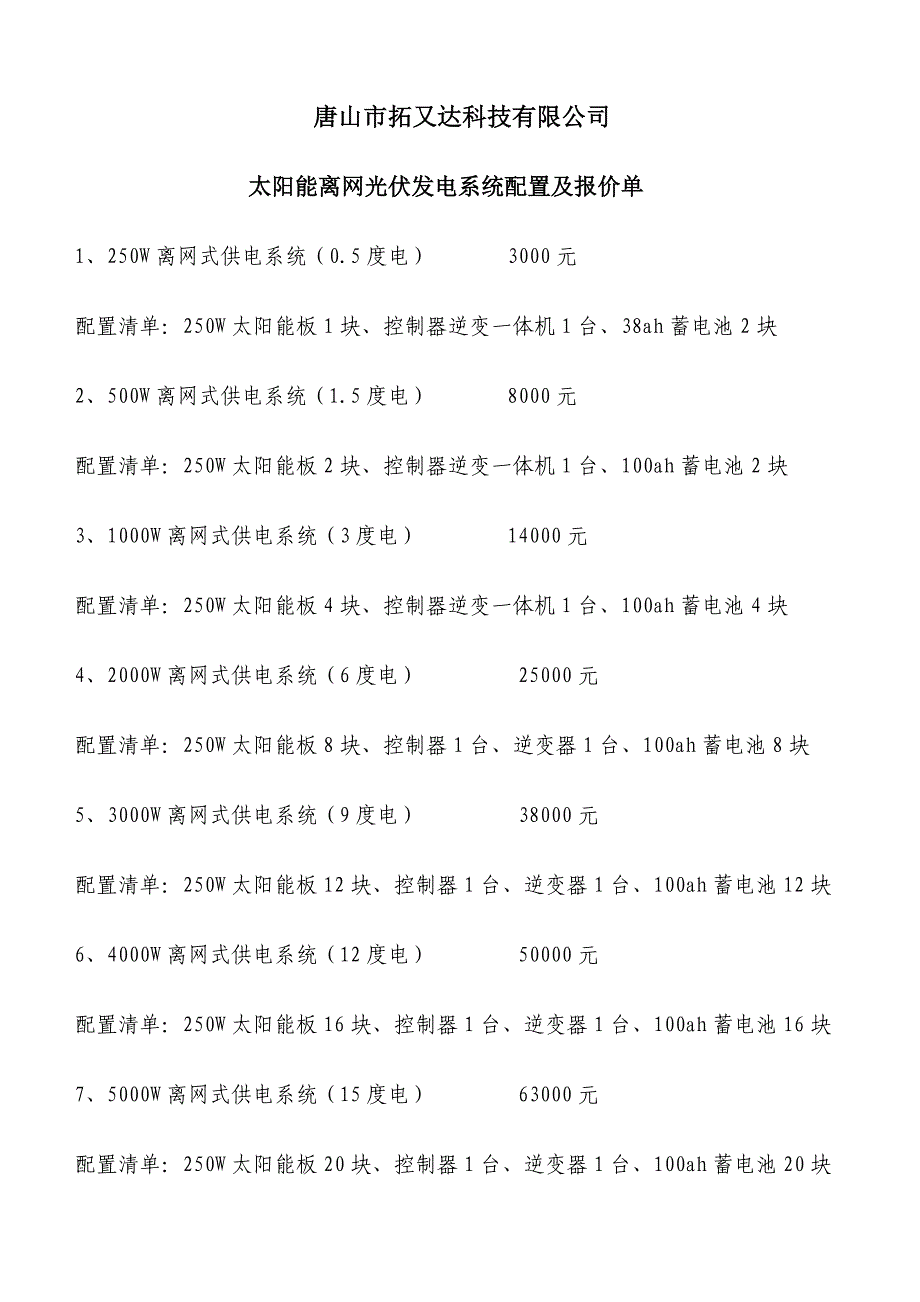 唐山市拓又达科技有限公司
太阳能离网光伏发电系统配置及报价单
1、250W离网式供电系统（0.5度电） 3000元
配置清单：250W太阳能板1块、控制器逆变一体机1台、38ah蓄电池2块
2、500W离网式供电系统（1.5度电） 8000元
配置清单：250W太阳能板2块、控制器逆变一体机1台、100ah蓄电池2块
3、1000W离网式供电系统（3度电） 14000元
配置清单：250W太阳能板4块、控制器逆变一体机1台、100ah蓄电池4块
4、2000W离网式供电系统（6度电） 25000元
配置清单：250W太阳能板8块、控制器1台、逆变器1台、100ah蓄电池8块
5、3000W离网式供电系统（9度电） 38000元
配置清单：250W太阳能板12块、控制器1台、逆变器1台、100ah蓄电池12块
6、4000W离网式供电系统（12度电） 50000元
配置清单：250W太阳能板16块、控制器1台、逆变器1台、100ah蓄电池16块
7、5000W离网式供电系统（15度电） 63000元
配置清单：250W太阳能板20块、控制器1台、逆变器1台、100ah蓄电池20块